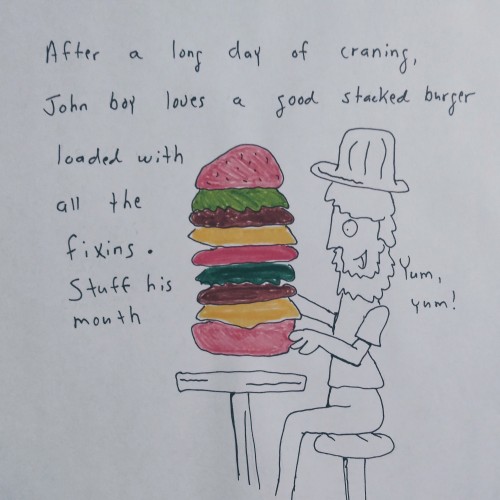 After a long day of craning,
John boy loves a good stacked burger
loaded with
all the
fixins.
Stuff his
mouth
Yum,
yum!